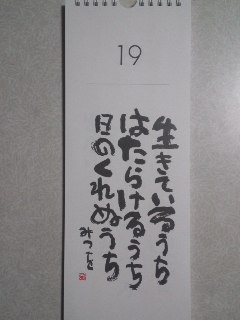 19
生きているうち
はたらけるうち
日のくれぬうち
みつを